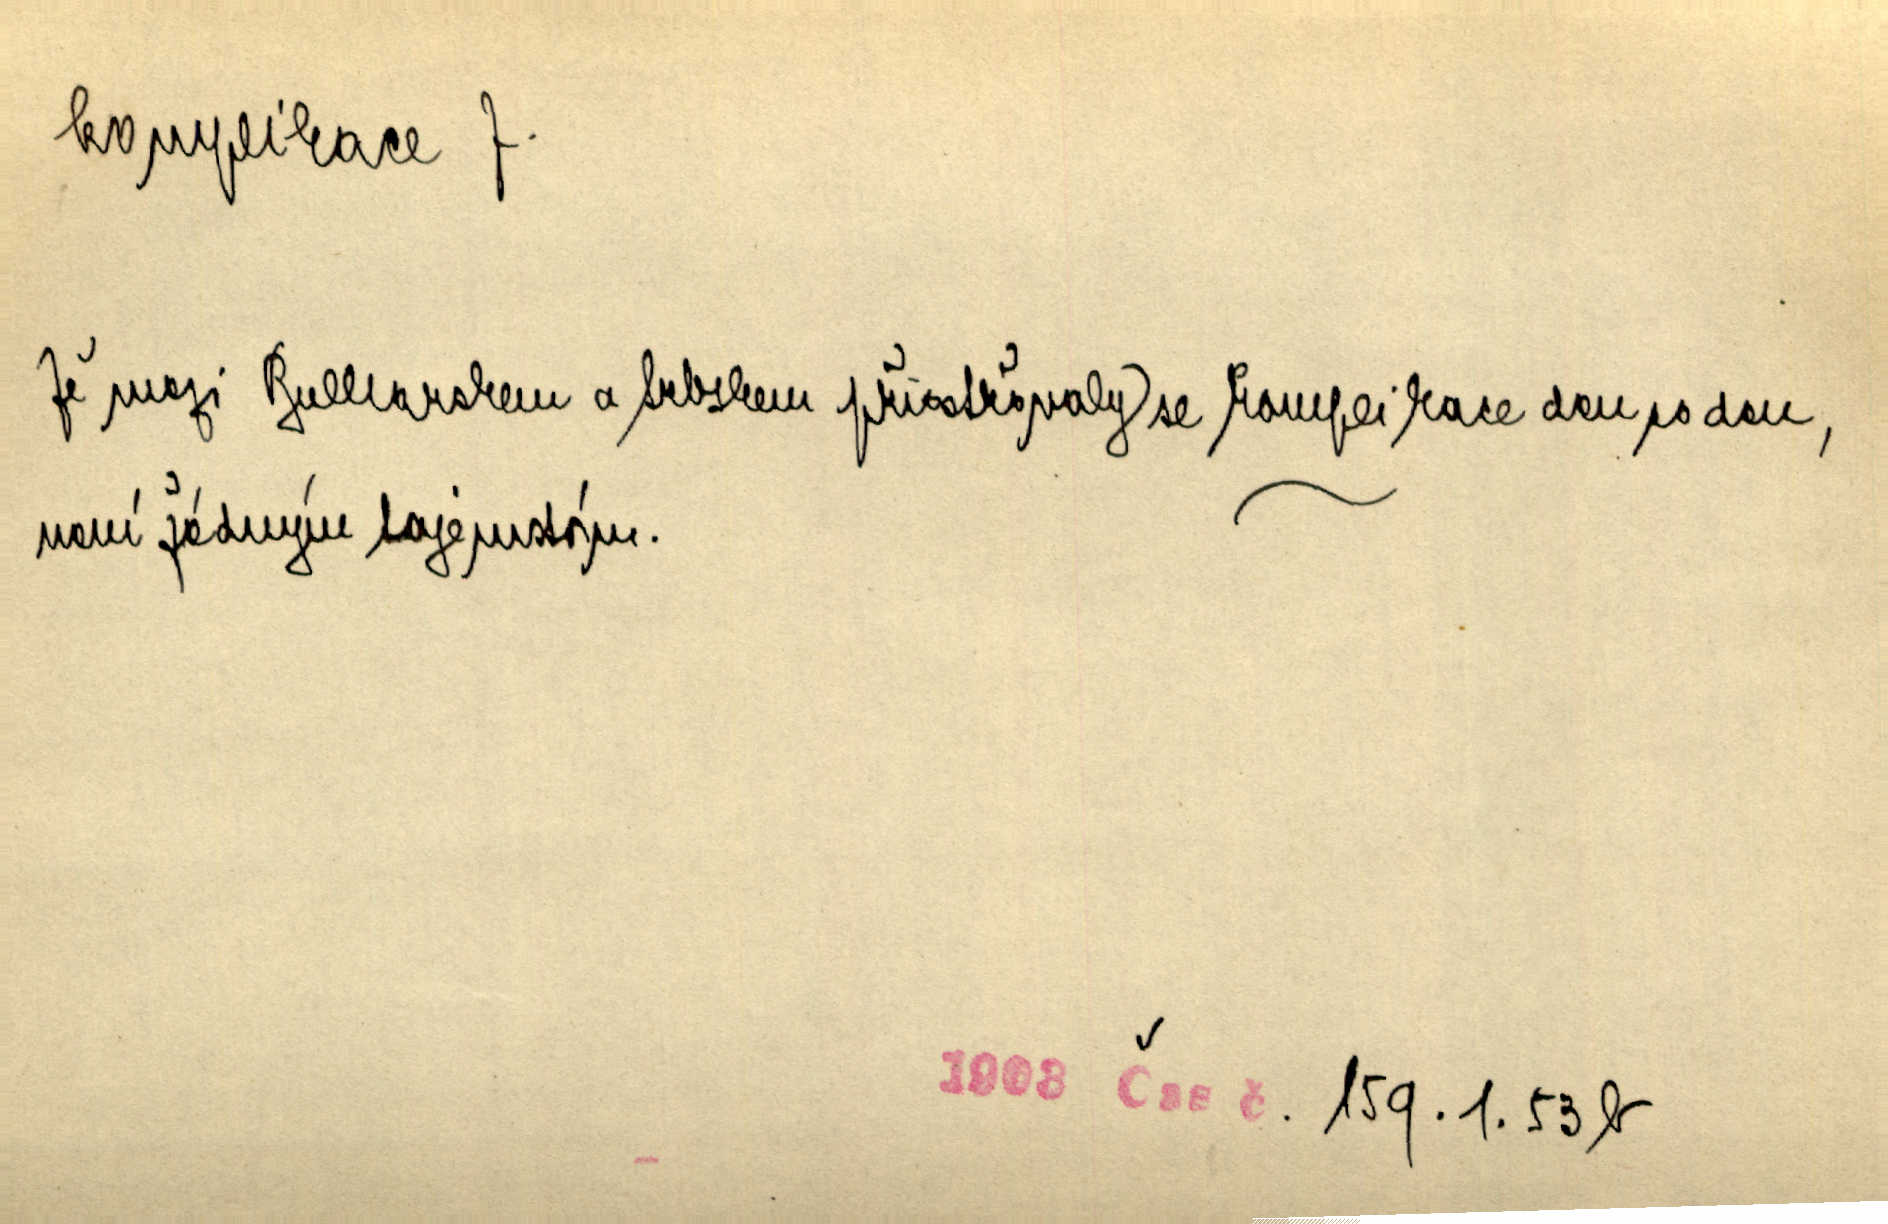 komplikace f.
Že mezi Bulharskem a Srbskem přiostřovaly) se komplikace den po dni,
není žádným tajemstvím.
1908 Čas č. 159.1.53b